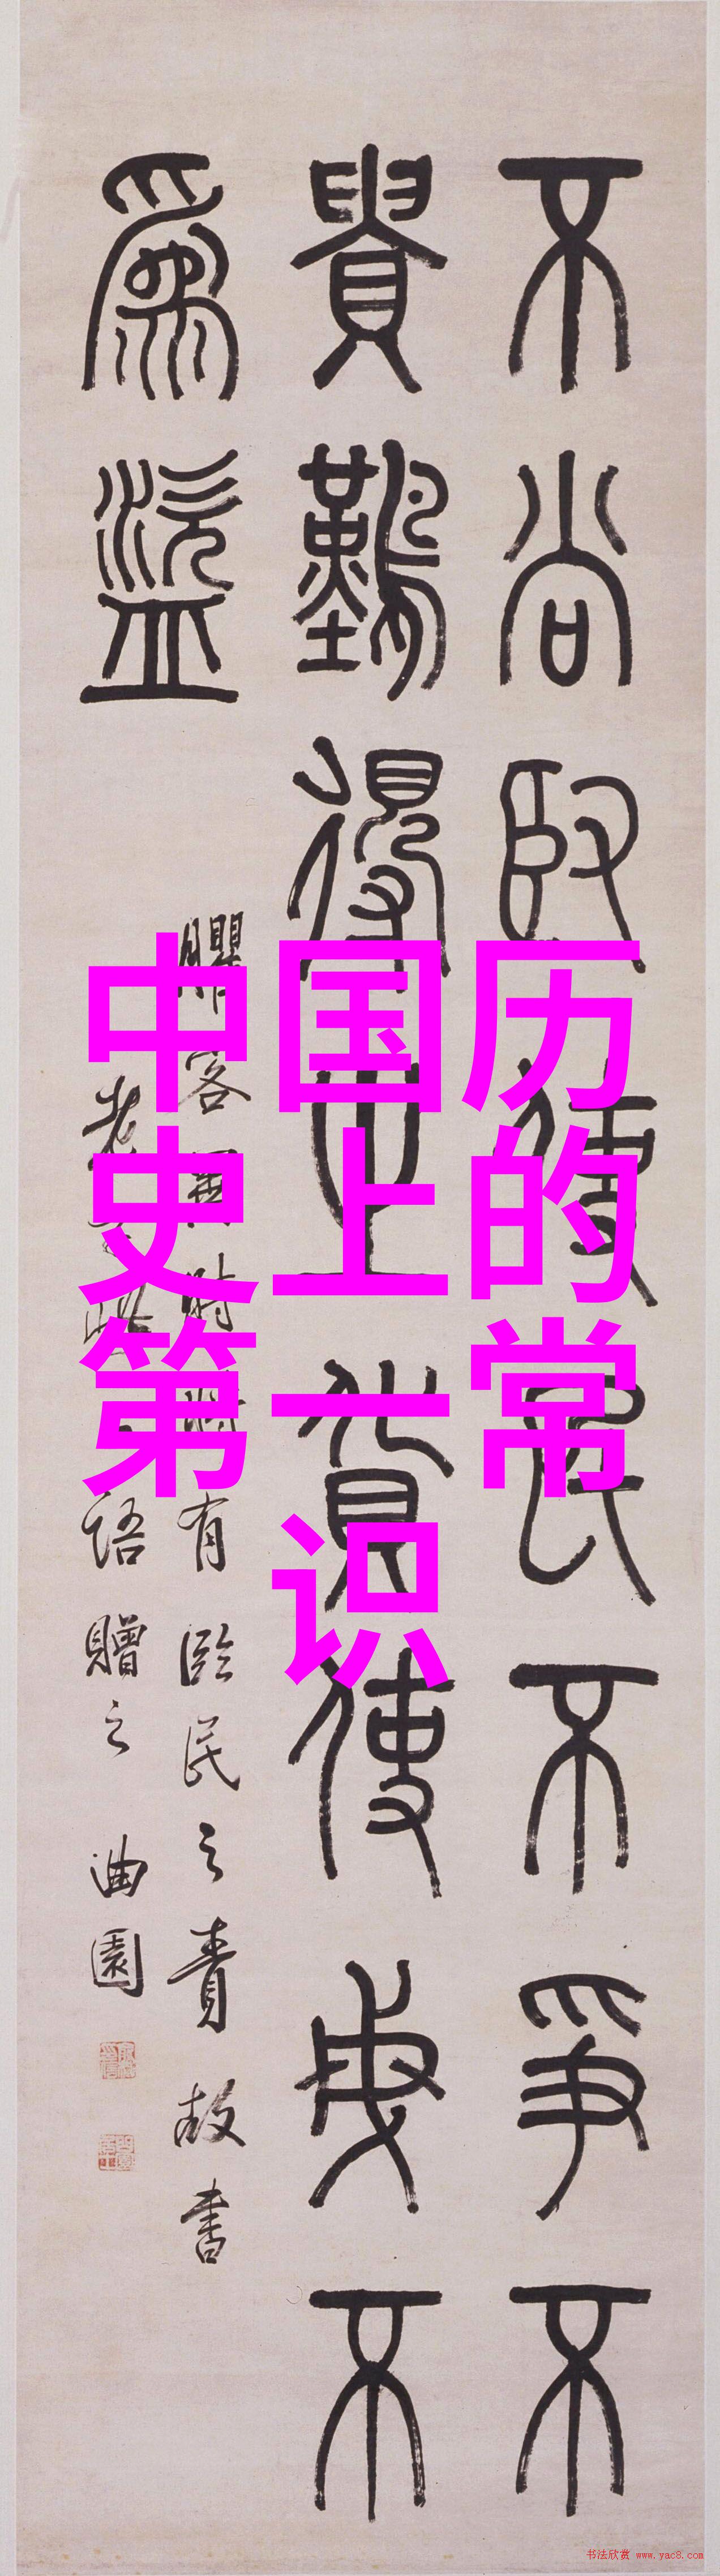 不尚臤使民不爭不
貴難得之貨使民不
爲盜
有臨民之責故書
語贈之 曲園
中国历
史上的
第一常
识
书法欣赏 www.yac8.com